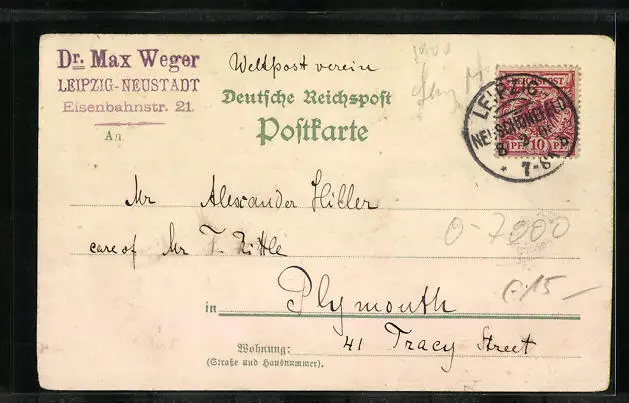 Dr. Max Weger
LEIPZIG-NEUSTADT
Eisenbahnstr. 21.
An
Weltpost verein
Deutsche Reichspost
Postkarte
1900
REICHSPOST
PF 10 PF
LEIPZIG
7-8
Mr Alexander Hiller
care of Mr F. Kittle
in Plymouth
41 Tracy Street
Wohnung:
(Straße und Hausnummer).
0-7000
€15—